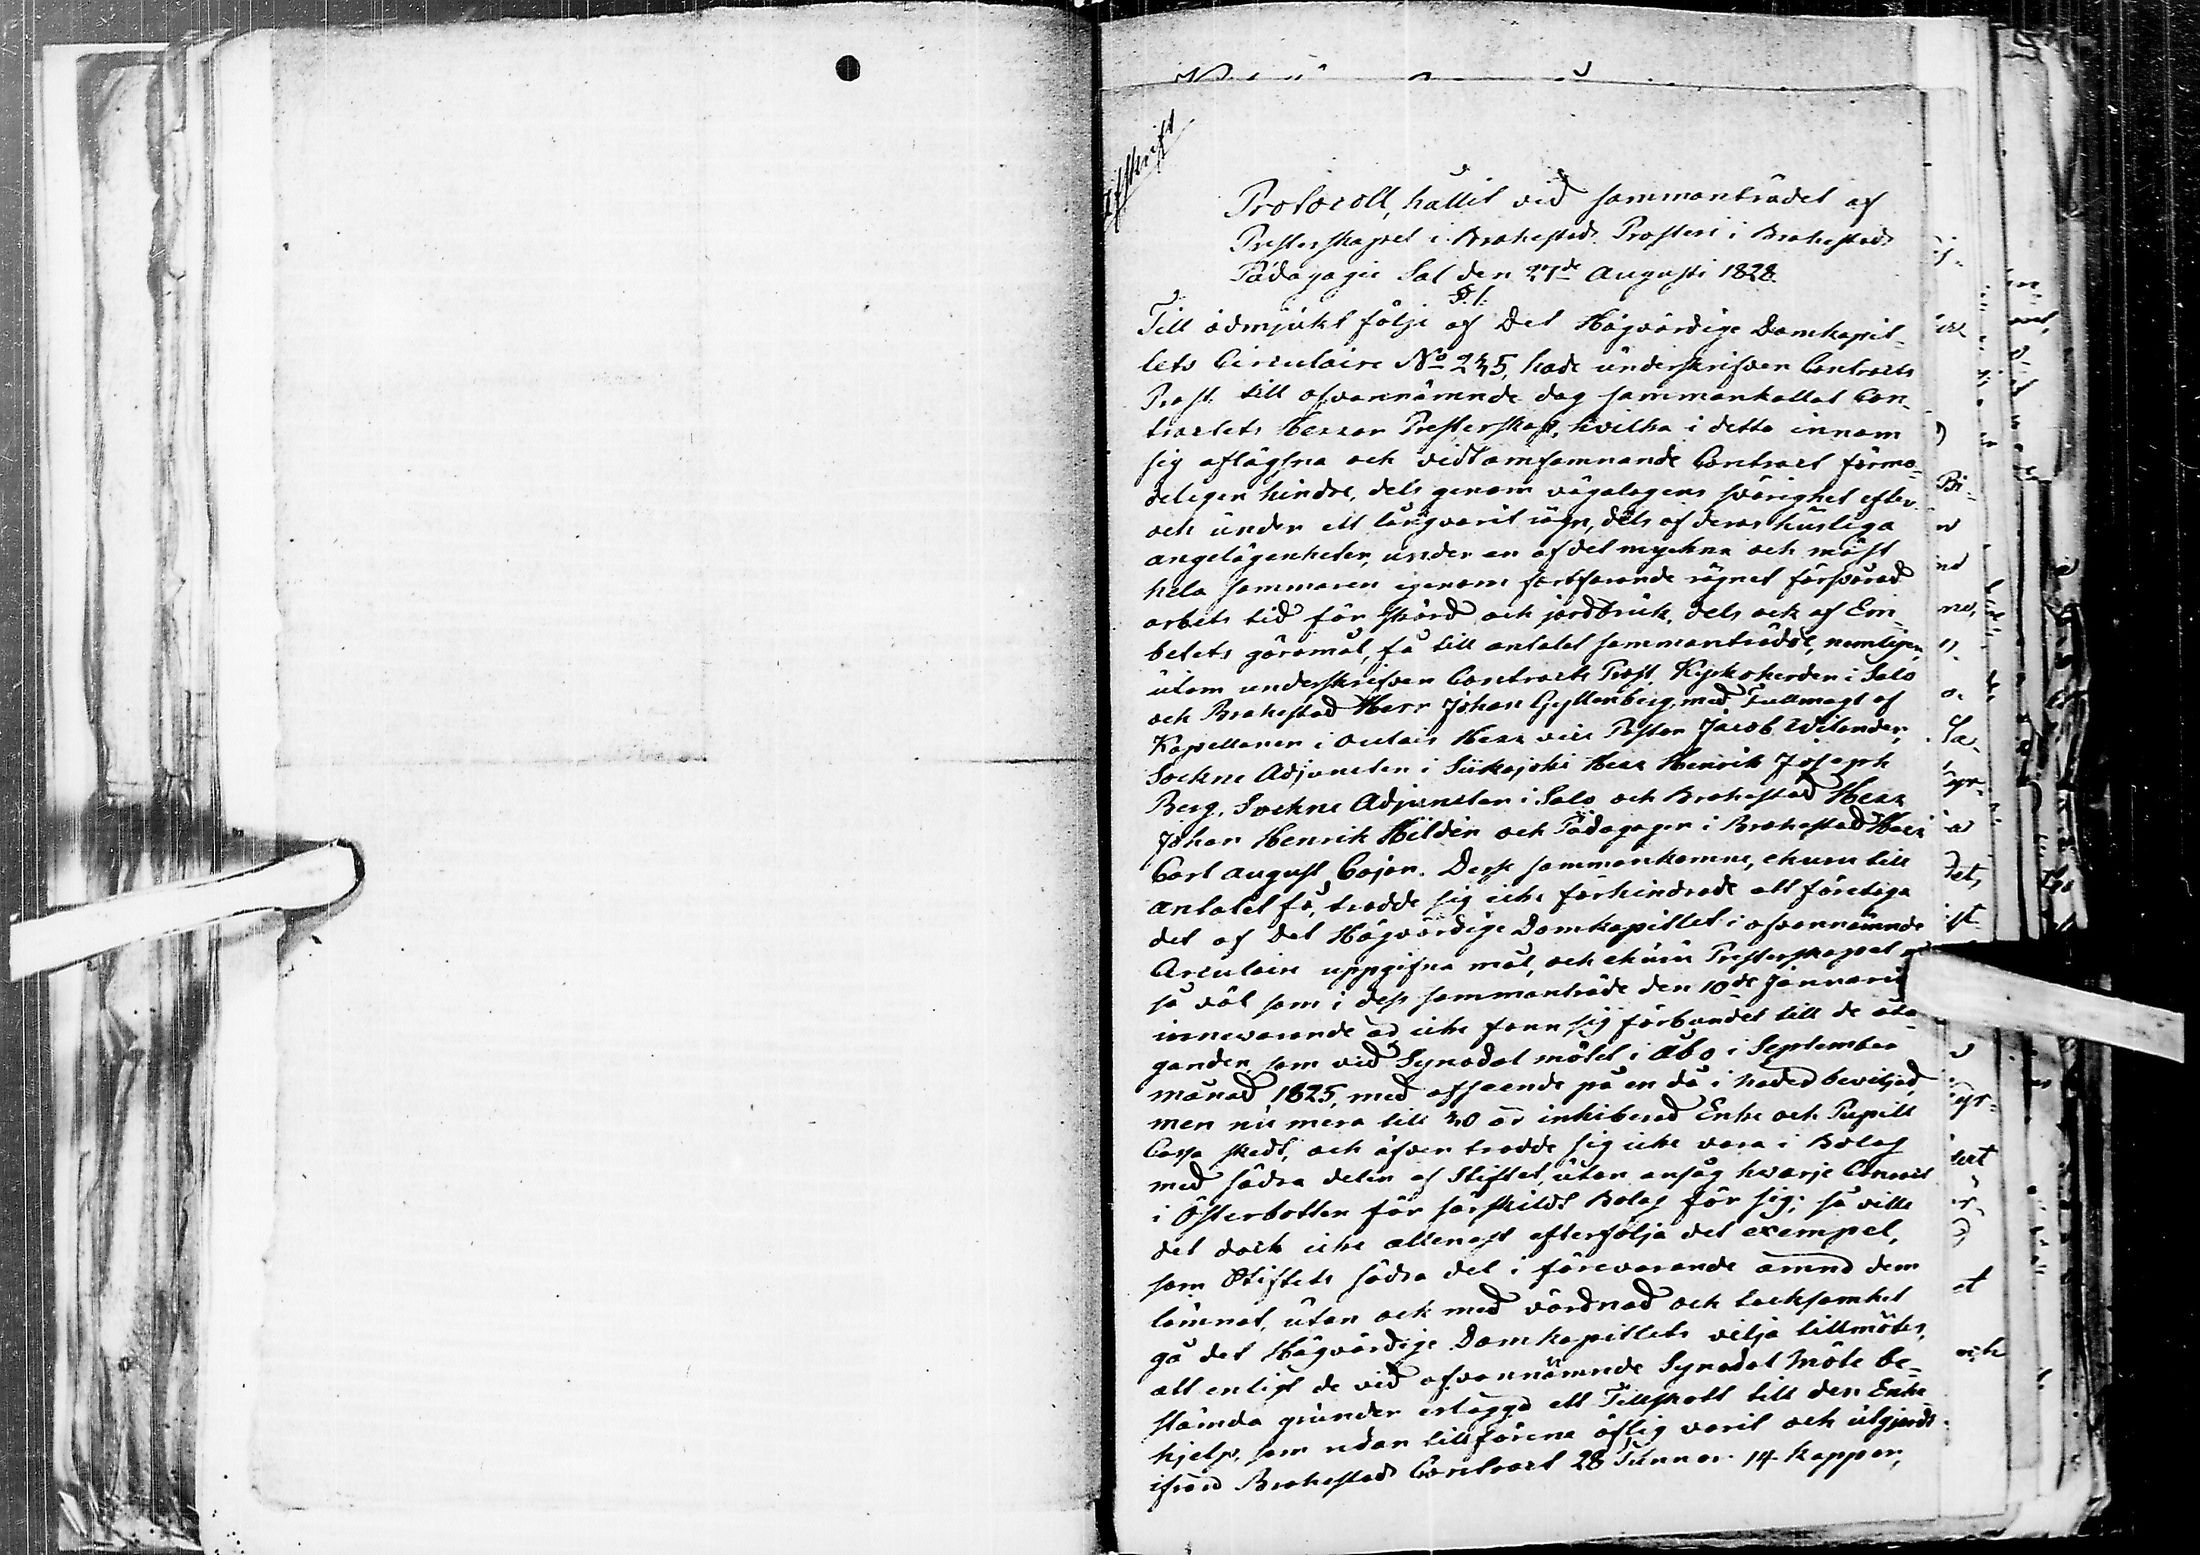 Afskrift
Protocoll, hållit vid sammanträdet af
Presterskapet i Brahestads Prosteri i Brahestads
Pädagogie Sal den 27de Augusti 1828.
§. 1.
Till ödmjukt följe af Det Högvördige Domkapit-
lets Circulaire No 235, hade underskrifven Contracts
Prost till ofvannämnde dag sammankallat Con-
tractets Herrar Presterskap, hvilka i detta innom
sig aflägsna och vidt omfamnande Contract förmo-
deligen hindre, dels genom vägalagens svårighet efter
och under ett långvarit rägn, dels af deras husliga
angelägenheter, under en af det myckna och mäst
hela sommaren igenom fortfarande rägnet försvårad
arbets tid för skörd och jordbruk, dels ock af Em-
betets göromål, få till antalet sammanträdde, nemligen,
utom underskrifven Contracts Prost, Kyrkoherden i Salo
och Brahestad Herr Johan Gyllenberg, med Fullmagt af
Kapellanen i Oulais Herr vice Pastor Jacob Wilander,
Sockne Adjuncten i Siikajoki Herr Henrik Joseph
Berg, Sockne Adjuncten i Salo och Brahestad Herr
Johan Henrik Hildén och Pädagogen i Brahestad Herr
Carl August Cajan. Desse sammankomne, ehuru till
antalet få, trodde sig icke förhindrade att företaga
det af Det Högvördige Domkapitlet i ofvannämnde
Circulair uppgifna mål, och ehuru Presterskapet
så väl som i dess sammanträde den 10de Januarii
innevarande år icke fann sig förbundet till de åta-
ganden, som vid Synodal mötet i Åbo i September
månad 1825, med afseende på en då i nåder beviljad,
men nu mera till 30 år inhiberad Enke och Pupill
Cassa skedt, och äfven trodde sig icke vara i Bolag
med södra delen af Stiftet, utan ansåg hvarje Contract
i Österbotten för särskildt Bolag för sig; så ville
det dock icke allenast efterfölja det exempel,
som Stiftets södra del i förevarande ämne dem
lämnat, utan ock med vördnad och tacksamhet
gå det Högvördige Domkapitlets vilja tillmötes,
att enligt de vid ofvannämnde Synodal Möte be-
stämda grunder erlägga ett Tillskott till den Enke-
hjelp, som redan tillförene öflig varit och utgjorde
ifrån Brahestads Contract 28 Tunnor 14 kappar,